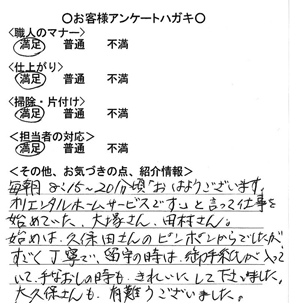 〇お客様アンケートハガキ〇
<職人のマナー>
満足 普通 不満
<仕上がり>
満足 普通 不満
<掃除・片付け>
満足 普通 不満
<担当者の対応>
満足 普通 不満
<その他、お気づきの点、紹介情報>
毎朝 8:15～20分頃「おはようございます。
オリエンタルホームサービスです。」と言って仕事を
始めていた、大塚さん、田村さん。
始めは、久保田さんのピンポンからでしたが
すごく丁寧で、留守の時は、 が入って
いて、手なおしの時も、きれいにして下さいました。
大久保さんも、有難うございました。